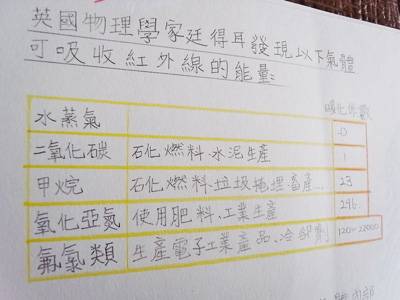 英國物理學家廷得耳發現以下氣體
可吸收紅外線的能量:
暖化係數
水蒸氣 0
二氧化碳 石化燃料、水泥生產 1
甲烷 石化燃料、垃圾掩埋、畜產... 23
氧化亞氮 使用肥料、工業生產 296
氟氯類 生產電子工業產品、冷卻劑 120~22000
內部